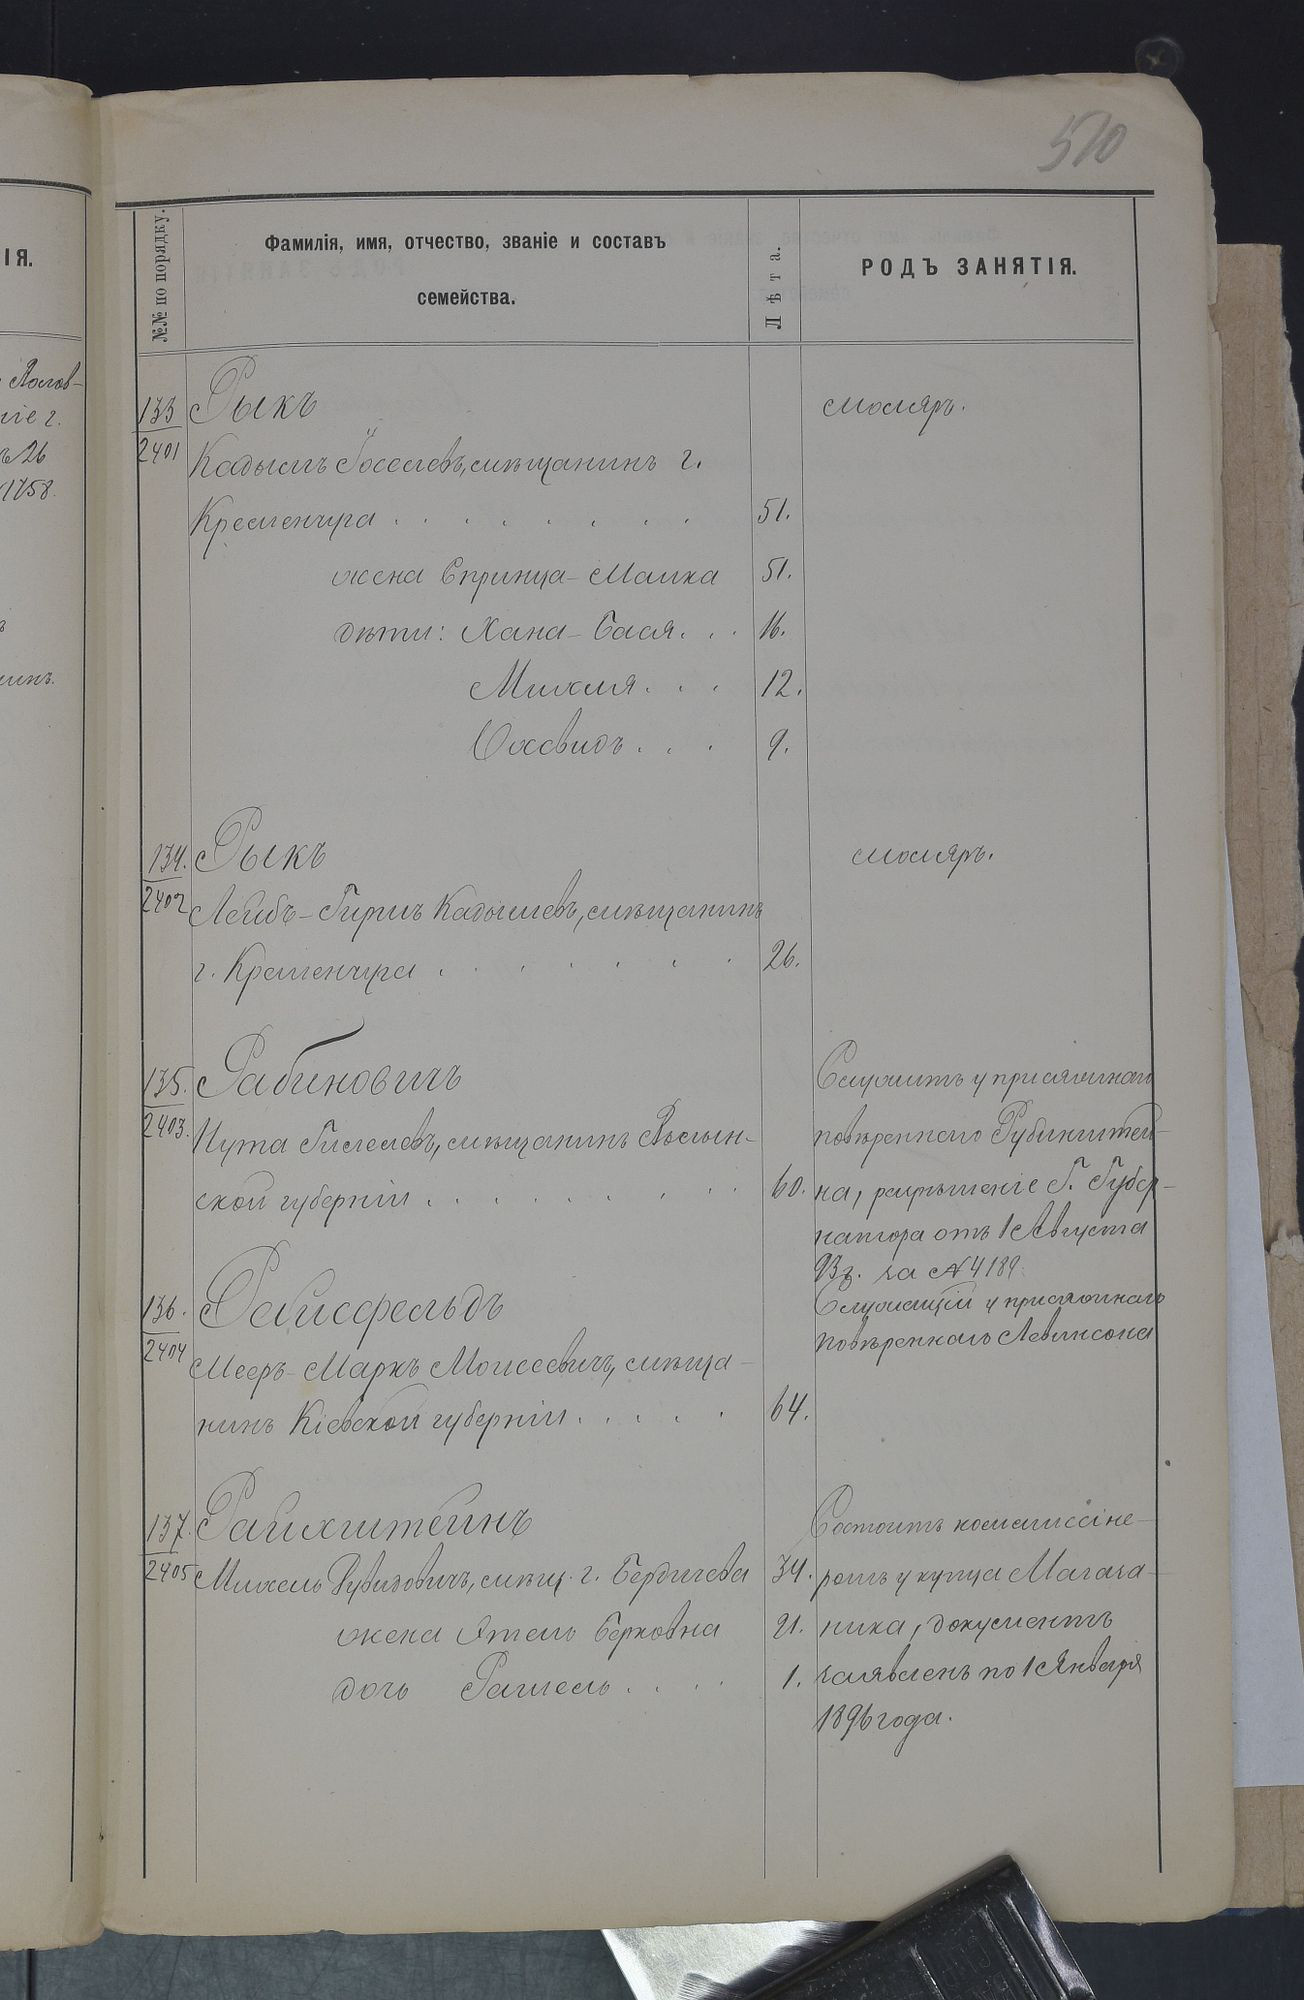 510
№№ по порядку.
Фамилія, имя, отчество, званіе и составъ
семейства.
Лѣта.
РОДЪ ЗАНЯТІЯ.
ІЯ.
ніе г.
ъ 26
1758.
133 Рыкъ маляръ.
2401 Кадышъ Іоселевъ, мѣщанинъ г.
Кременчуга . . . . . . . . 51.
жена Спринца-Малка 51.
дѣти: Хана-Бася . . . 16.
Михля . . . 12.
Іохевидъ . . . 9.
134. Рыкъ маляръ.
2402 Лейбъ-Гиршъ Кадышевъ, мѣщанинъ
г. Кременчуга . . . . . . . 26.
135. Рабиновичъ Служитъ у присяжнаго
2403. Нута Гилелевъ, мѣщанинъ Волын- повѣреннаго Рубинштей-
ской губерніи . . . . . . . . 60. на, разрѣшеніе Г. Губер-
натора отъ 1 Августа
93 г. за № 4189.
136. Райсфельдъ Служащій у присяжнаго
2404 Мееръ-Маркъ Моисеевичъ, мѣща- повѣреннаго Левинсона
нинъ Кіевской губерніи . . . . . 64.
137. Райхштейнъ Состоитъ коммиссіоне-
2405 Михель Рувиновичъ, мѣщ. г. Бердичева 34. ромъ у купца Магаза-
жена Этель Берковна 21. ника, документъ
дочь Рахель . . . . 1. заявленъ по 1 Января
1896 года.